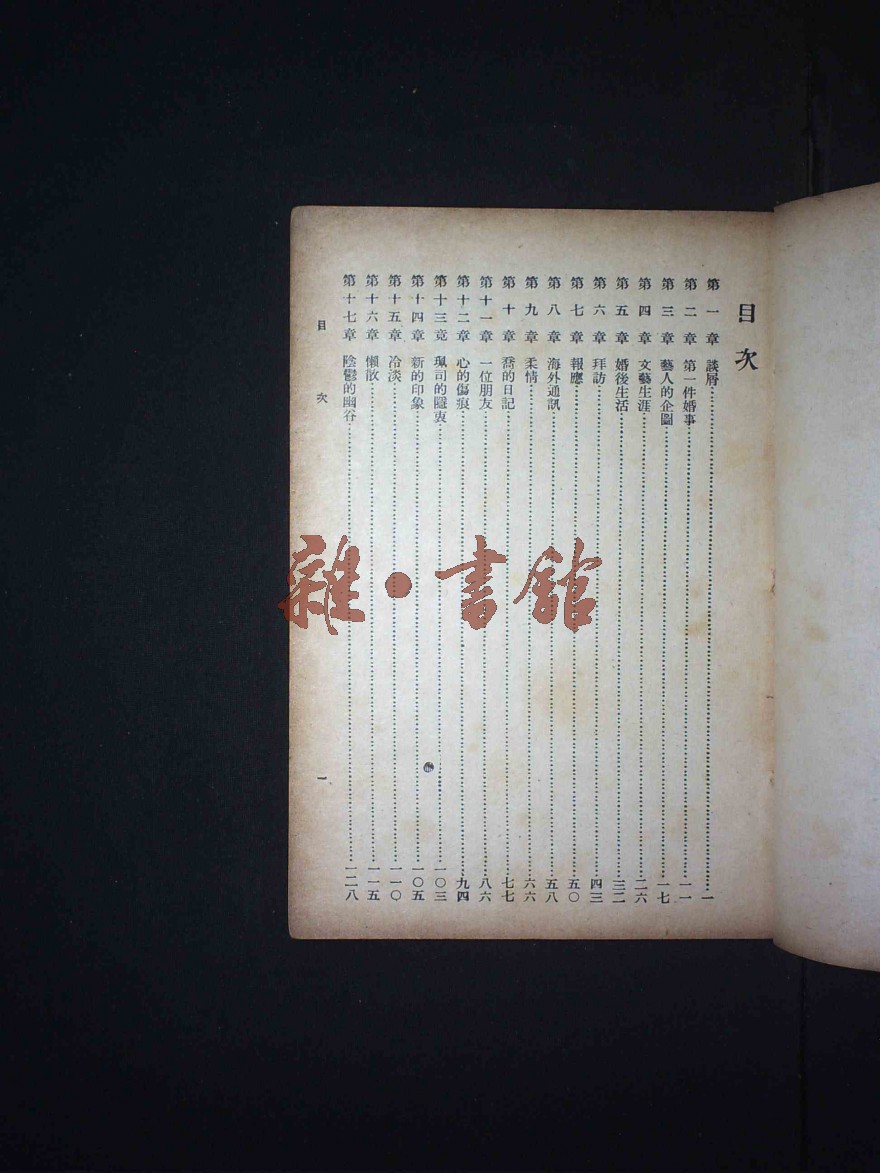 目次
第一章 談屑……一
第二章 第一件婚事……一一
第三章 藝人的企圖……一七
第四章 文藝生涯……二六
第五章 婚後生活……三二
第六章 拜訪……四三
第七章 報應……五〇
第八章 海外通訊……五八
第九章 柔情……六六
第十章 喬的日記……七七
第十一章 一位朋友……八六
第十二章 心的傷痕……九四
第十三竟 珮司的隱衷……一〇三
第十四章 新的印象……一〇五
第十五章 冷淡……一一〇
第十六章 懶散……一一五
第十七章 陰鬱的幽谷……一二八
目次
一
雜·書館